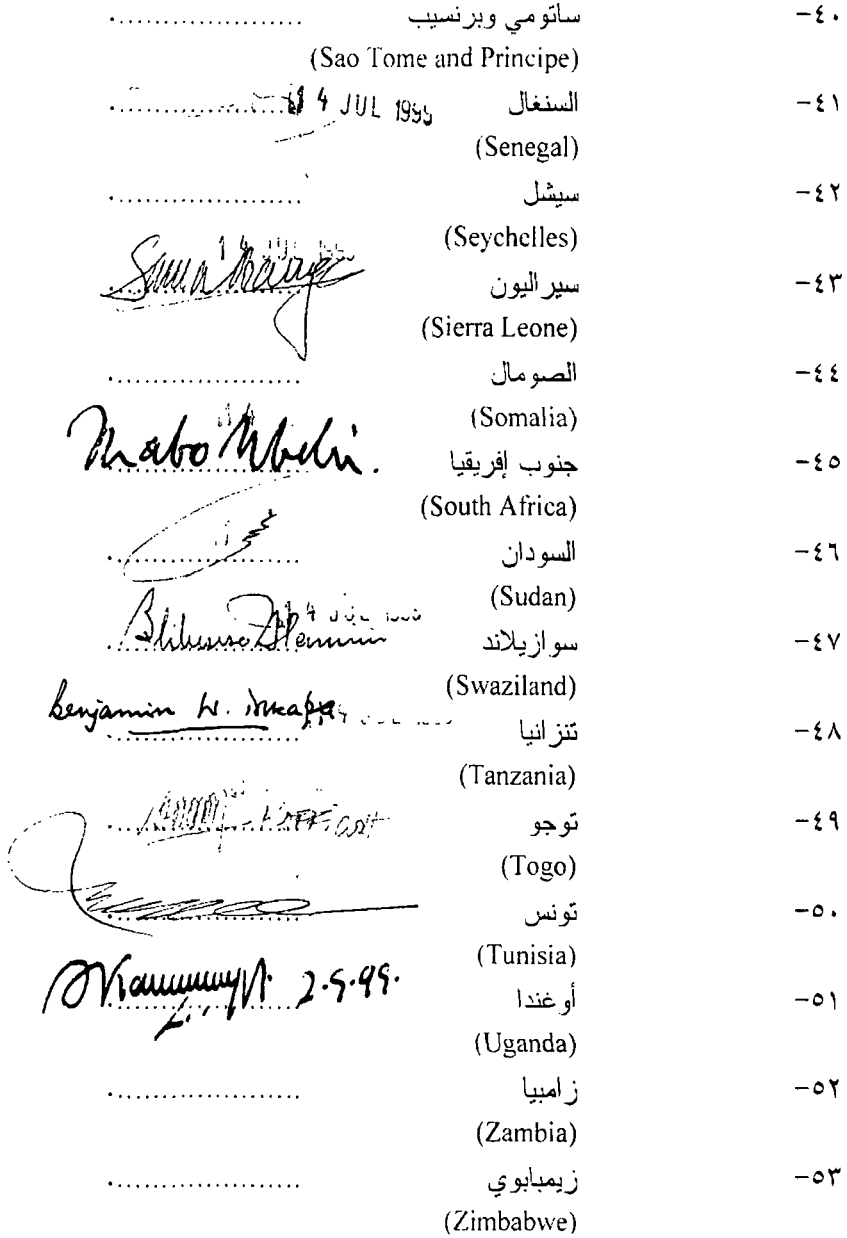 ٤٠- ساتومي وبرنسيب .....................
(Sao Tome and Principe)
٤١- السنغال ..................... 14 JUL 1999
(Senegal)
٤٢- سيشل .....................
(Seychelles)
٤٣- سيراليون .....................
(Sierra Leone)
٤٤- الصومال .....................
(Somalia)
٤٥- جنوب إفريقيا Thabo Mbeki.
(South Africa)
٤٦- السودان .....................
(Sudan)
٤٧- سوازيلاند .....................
(Swaziland)
٤٨- تنزانيا Benjamin W. Mkapa
(Tanzania)
٤٩- توجو .....................
(Togo)
٥٠- تونس .....................
(Tunisia)
٥١- أوغندا 2.9.99.
(Uganda)
٥٢- زامبيا .....................
(Zambia)
٥٣- زيمبابوي .....................
(Zimbabwe)